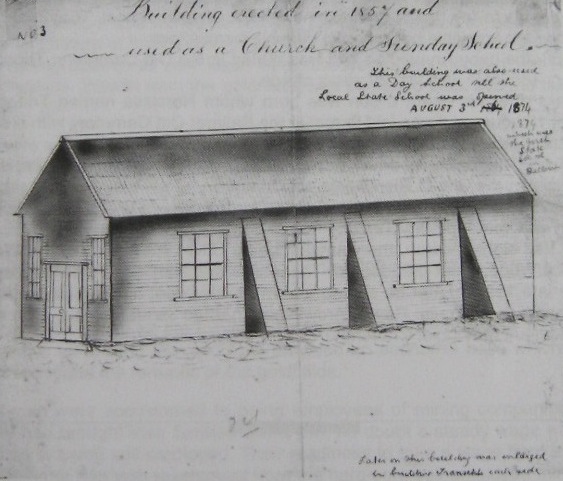 Building erected in 1857 and
No 3
used as a Church and Sunday School.
This building was also used
as a Day School till the
Local State School was opened
AUGUST 3rd 1874
1874
which was
the
State
Later on this building was enlarged
each side